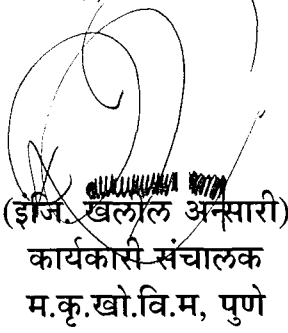 (इंजि. खलील अन्सारी)
कार्यकारी संचालक
म.कृ.खो.वि.म, पुणे